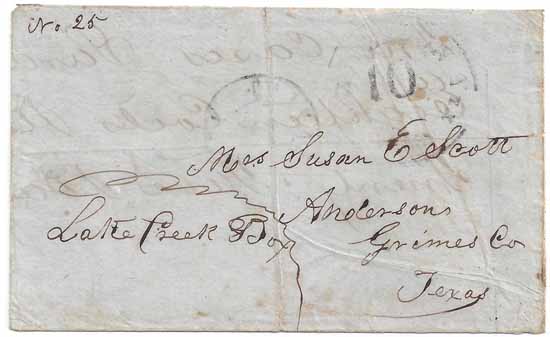 No. 25
10
Mrs Susan E Scott
Andersons
Lake Creek Box
Grimes Co
Texas